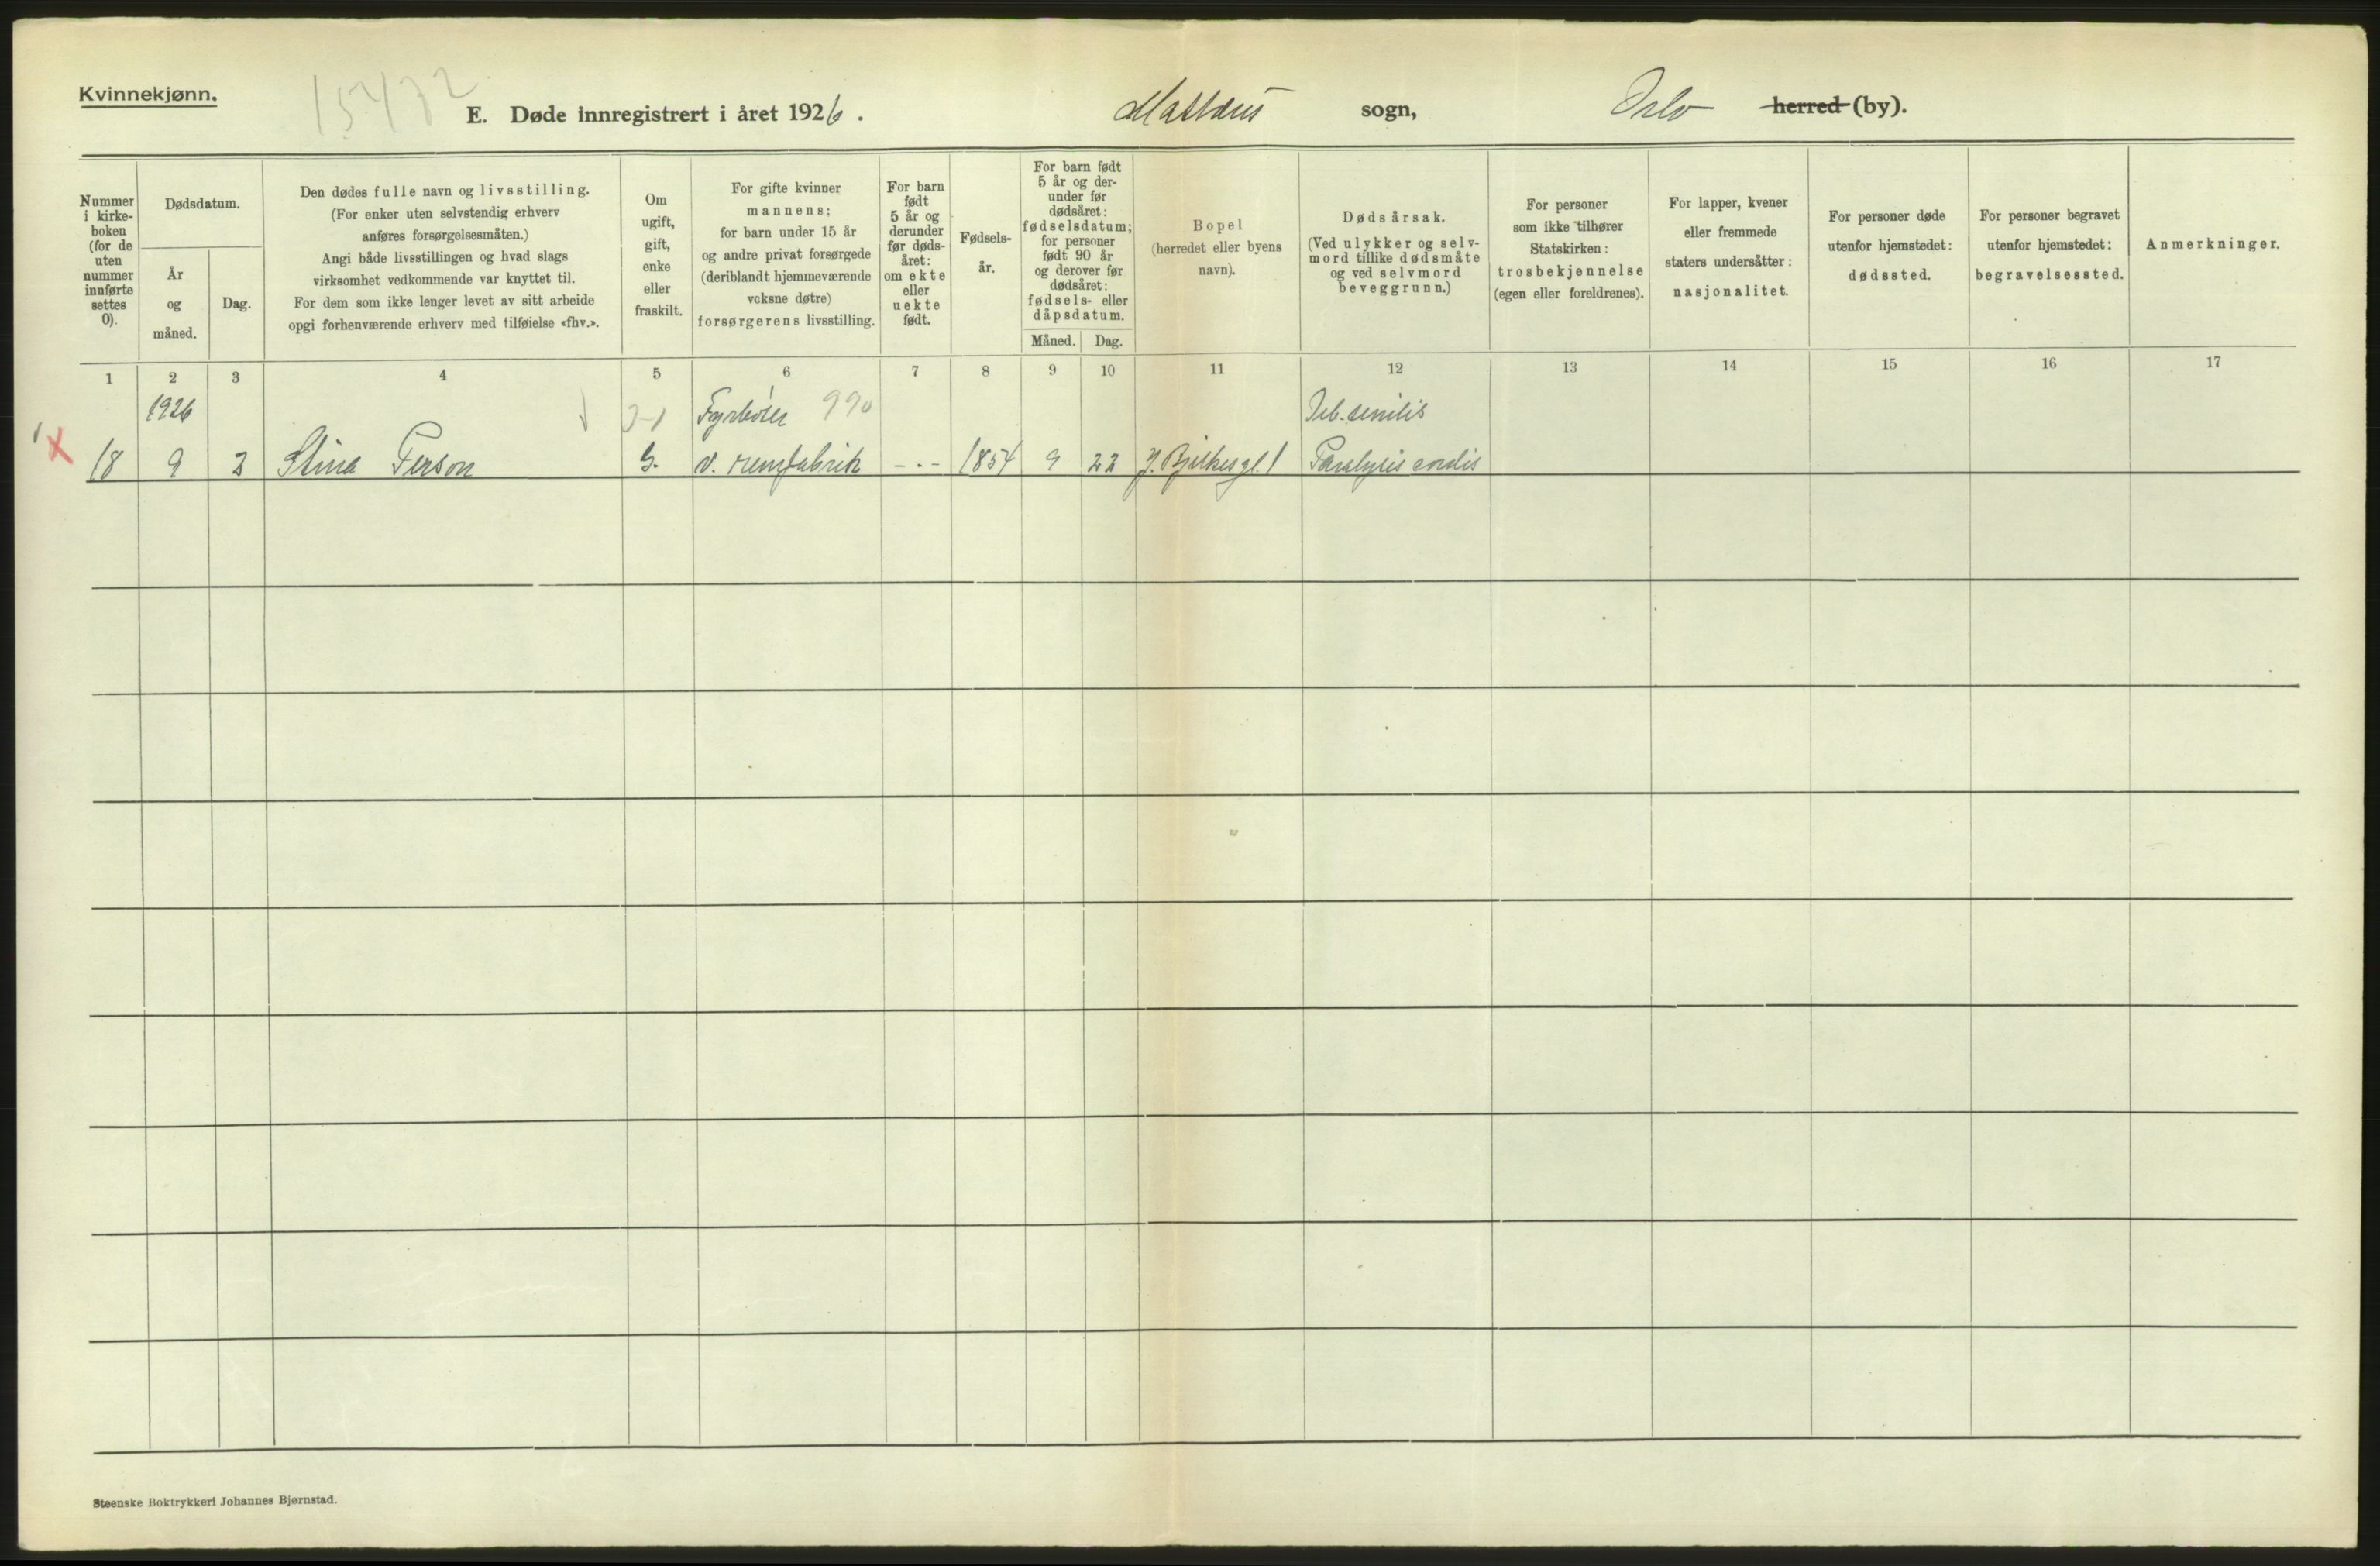 Kvinnekjønn.
15472
E. Døde innregistrert i året 1926.
Mattæus sogn,
Oslo herred (by).
Nummer
i kirke-
boken
(for de
uten
nummer
innførte
settes
0).
Dødsdatum.
År
og
måned.
Dag.
Den dødes fulle navn og livsstilling.
(For enker uten selvstendig erhverv
anføres forsørgelsesmåten.)
Angi både livsstillingen og hvad slags
virksomhet vedkommende var knyttet til.
For dem som ikke lenger levet av sitt arbeide
opgi forhenværende erhverv med tilføielse «fhv.».
Om
ugift,
gift,
enke
eller
fraskilt.
For gifte kvinner
mannens;
for barn under 15 år
og andre privat forsørgede
(deriblandt hjemmeværende
voksne døtre)
forsørgerens livsstilling.
For barn
født
5 år og
derunder
før døds-
året:
om ekte
eller
uekte
født.
Fødsels-
år.
For barn født
5 år og der-
under før
dødsåret:
fødselsdatum;
for personer
født 90 år
og derover før
dødsåret:
fødsels- eller
dåpsdatum.
Måned.
Dag.
Bopel
(herredet eller byens
navn).
Dødsårsak.
(Ved ulykker og selv-
mord tillike dødsmåte
og ved selvmord
beveggrunn.)
For personer
som ikke tilhører
Statskirken:
trosbekjennelse
(egen eller foreldrenes).
For lapper, kvener
eller fremmede
staters undersåtter:
nasjonalitet.
For personer døde
utenfor hjemstedet:
dødssted.
For personer begravet
utenfor hjemstedet:
begravelsessted.
Anmerkninger.
1 2 3 4 5 6 7 8 9 10 11 12 13 14 15 16 17
1926 Fyrbøter 990 Deb. senilis
18 9 3 Stina Person G. v. remfabrik - . - 1854 9 22 J. Bjelkesgt. 1 Paralysis cordis
Steenske Boktrykkeri Johannes Bjørnstad.